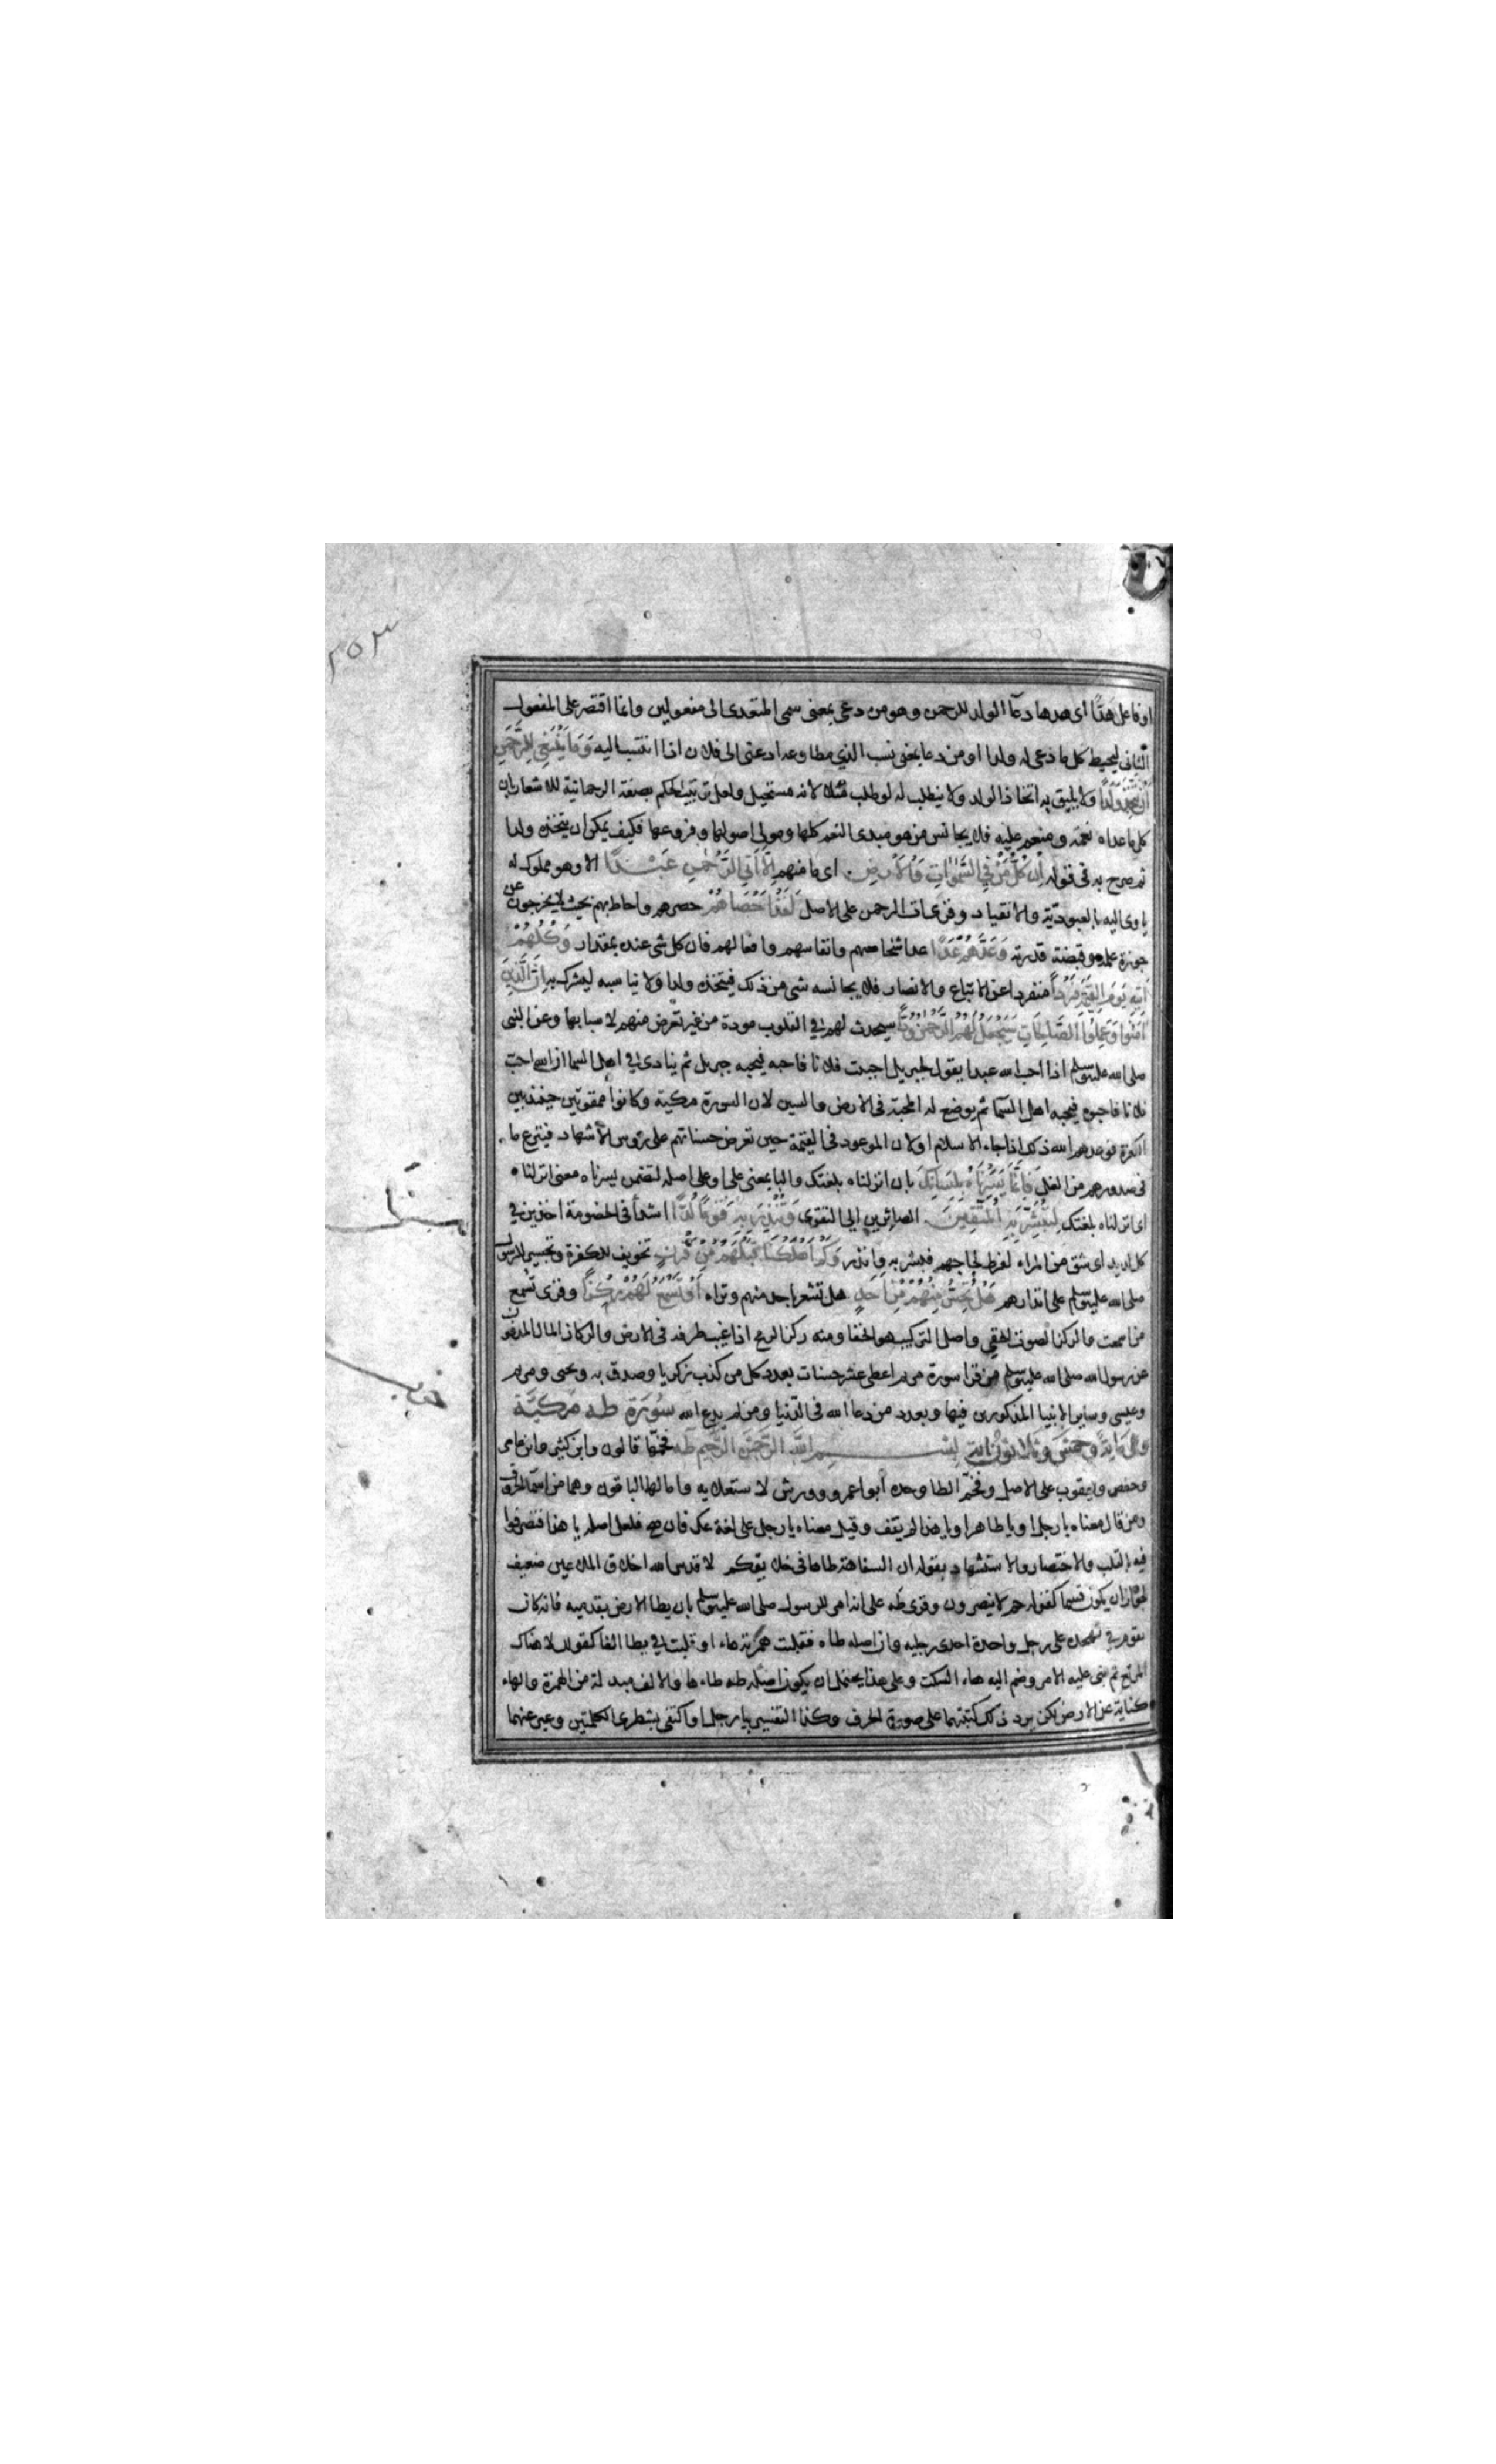 ٢٥٣
او فاعل هدّا اى هدها دعآ الولد للرحمن وهو من دعى بمعنى سمى المتعدى الى مفعولين وانما اقتصر على المفعول
الثانى ليحيط كل ما دعى له ولدا او من دعا بمعنى نسب الذي مطاوعه ادعى الى فلان اذا انتسب اليه وَمَا يَنْبَغِي لِلرَّحْمَنِ
أَنْ يَتَّخِذَ وَلَدًا ولا يليق به اتخاذ الولد ولا ينطلب له لو طلب مثلا لانه مستحيل ولعل ترتيب الحكم بصفة الرحمانية للاشعار بان
كل ما عداه نعمة ومنعم عليه فلا يجانس من هو مبدى النعم كلها ومولى اصولها وفروعها فكيف يمكن ان يتخذه ولدا
ثم صرح به فى قوله اِنْ كُلُّ مَنْ فِي السَّمٰوَاتِ وَالْأَرْضِ اى ما منهم اِلَّا اٰتِي الرَّحْمٰنِ عَبْدًا الا وهو مملوك له
ياوى اليه بالعبودية والانقياد وقرئ آت الرحمن على الاصل لَقَدْ اَحْصَاهُمْ حصرهم واحاط بهم بحيث لا يخرجون عن
حوزة علمه وقبضة قدرته وَعَدَّهُمْ عَدًّا عد اشخاصهم وانفاسهم وافعالهم فان كل شى عنده بمقدار وَكُلُّهُمْ
اٰتِيهِ يَوْمَ الْقِيٰمَةِ فَرْدًا منفردا عن الاتباع والانصار فلا يجانسه شى من ذلك فيتخذه ولدا ولا يناسبه ليشرك به اِنَّ الَّذِينَ
اٰمَنُوا وَعَمِلُوا الصَّالِحَاتِ سَيَجْعَلُ لَهُمُ الرَّحْمٰنُ وُدًّا سيحدث لهم في القلوب مودة من غير تعرض منهم لاسبابها وعن النبى
صلى الله عليه وسلم اذا احب الله عبدا يقول لجبريل احببت فلانا فاحبه فيحبه جبريل ثم ينادى في اهل السما ان الله احب
فلانا فاحبوه فيحبه اهل السّما ثم يوضع له المحبة فى الارض والسين لان السورة مكية وكانوا ممقوتين حينئذ بين
الكفرة فوعدهم الله ذلك اذا جاء الاسلام او لان الموعود فى القيمة حين تعرض حسناتهم على رؤس الاشهاد فينزع ما
فى صدورهم من الغل فَاِنَّمَا يَسَّرْنَاهُ بِلِسَانِكَ بان انزلناه بلغتك والبا بمعنى على او على اصله لتضمن يسرناه معنى انزلناه
اى انزلناه بلغتك لِتُبَشِّرَ بِهِ الْمُتَّقِينَ الصائرين الى التقوى وَتُنْذِرَ بِهِ قَوْمًا لُدًّا اشدآ فى الخصومة اخذين في
كل لديد اى شق من المراء لفرط لجاجهم فبشر به وانذر وَكَمْ اَهْلَكْنَا قَبْلَهُمْ مِنْ قَرْنٍ تخويف للكفرة وتجسير للرسول
صلى الله عليه وسلم على انذارهم هَلْ تُحِسُّ مِنْهُمْ مِنْ اَحَدٍ هل تشعر باحد منهم وتراه اَوْ تَسْمَعُ لَهُمْ رِكْزًا وقرئ تُسمع
من اسمعت والركز الصوت الخفى واصل التركيب هو الخفا ومنه ركز الرمح اذا غيب طرفه فى الارض والركاز المال المدفون
عن رسول الله صلى الله عليه وسلم من قرا سورة مريم اعطى عشر حسنات بعدد كل من كذب زكريا وصدق به ويحيى ومريم
وعيسى وساير الانبيا المذكورين فيها وبعدد من دعا الله فى الدّنيا ومن لم يدع الله سُورَة طـه مَكيَّة
وهى مايةٌ وخمسٌ وثلاثون ايةً بِسْمِ اللَّهِ الرَّحْمَنِ الرَّحِيمِ طه فخمها قالون وابن كثير وابن عامر
وحفص ويعقوب على الاصل وفخّم الطا وحده أبو عمرو وورش لاستعلايه وامالهما الباقون وهما من اسما الحروف
ومن قال معناه يا رجل او يا طاهر او يا هذا لم يقف وقيل معناه يا رجل على لغة عك فان صح فلعل اصله يا هذا فتصرفوا
فيه بالقلب والاختصار والاستشهاد بقوله ان السفاهة طاها فى خلايقكم لا قدس الله اخلاق الملاعين ضعيف
لجواز ان يكون قسما كقوله حم لا ينصرون وقرئ طه على انه امر للرسول صلى الله عليه وسلم بان يطا الارض بقدميه فانه كان
يقوم في تهجده على رجل واحدة احدى رجليه وان اصله طاه فقلبت همزته هاء او قلبت في يطا الفا كقوله لا هناك
المرتع ثم بنى عليه الامر وضم اليه هاء السكت وعلى هذا يحتمل ان يكون اصله طه طاء ها والالف مبدلة من الهمزة والهاء
كناية عن الارض لكن يرد ذلك كتبتهما على صورة الحرف وكذا التفسير بيا رجل او اكتفى بشطرى الكلمتين وعبر عنهما